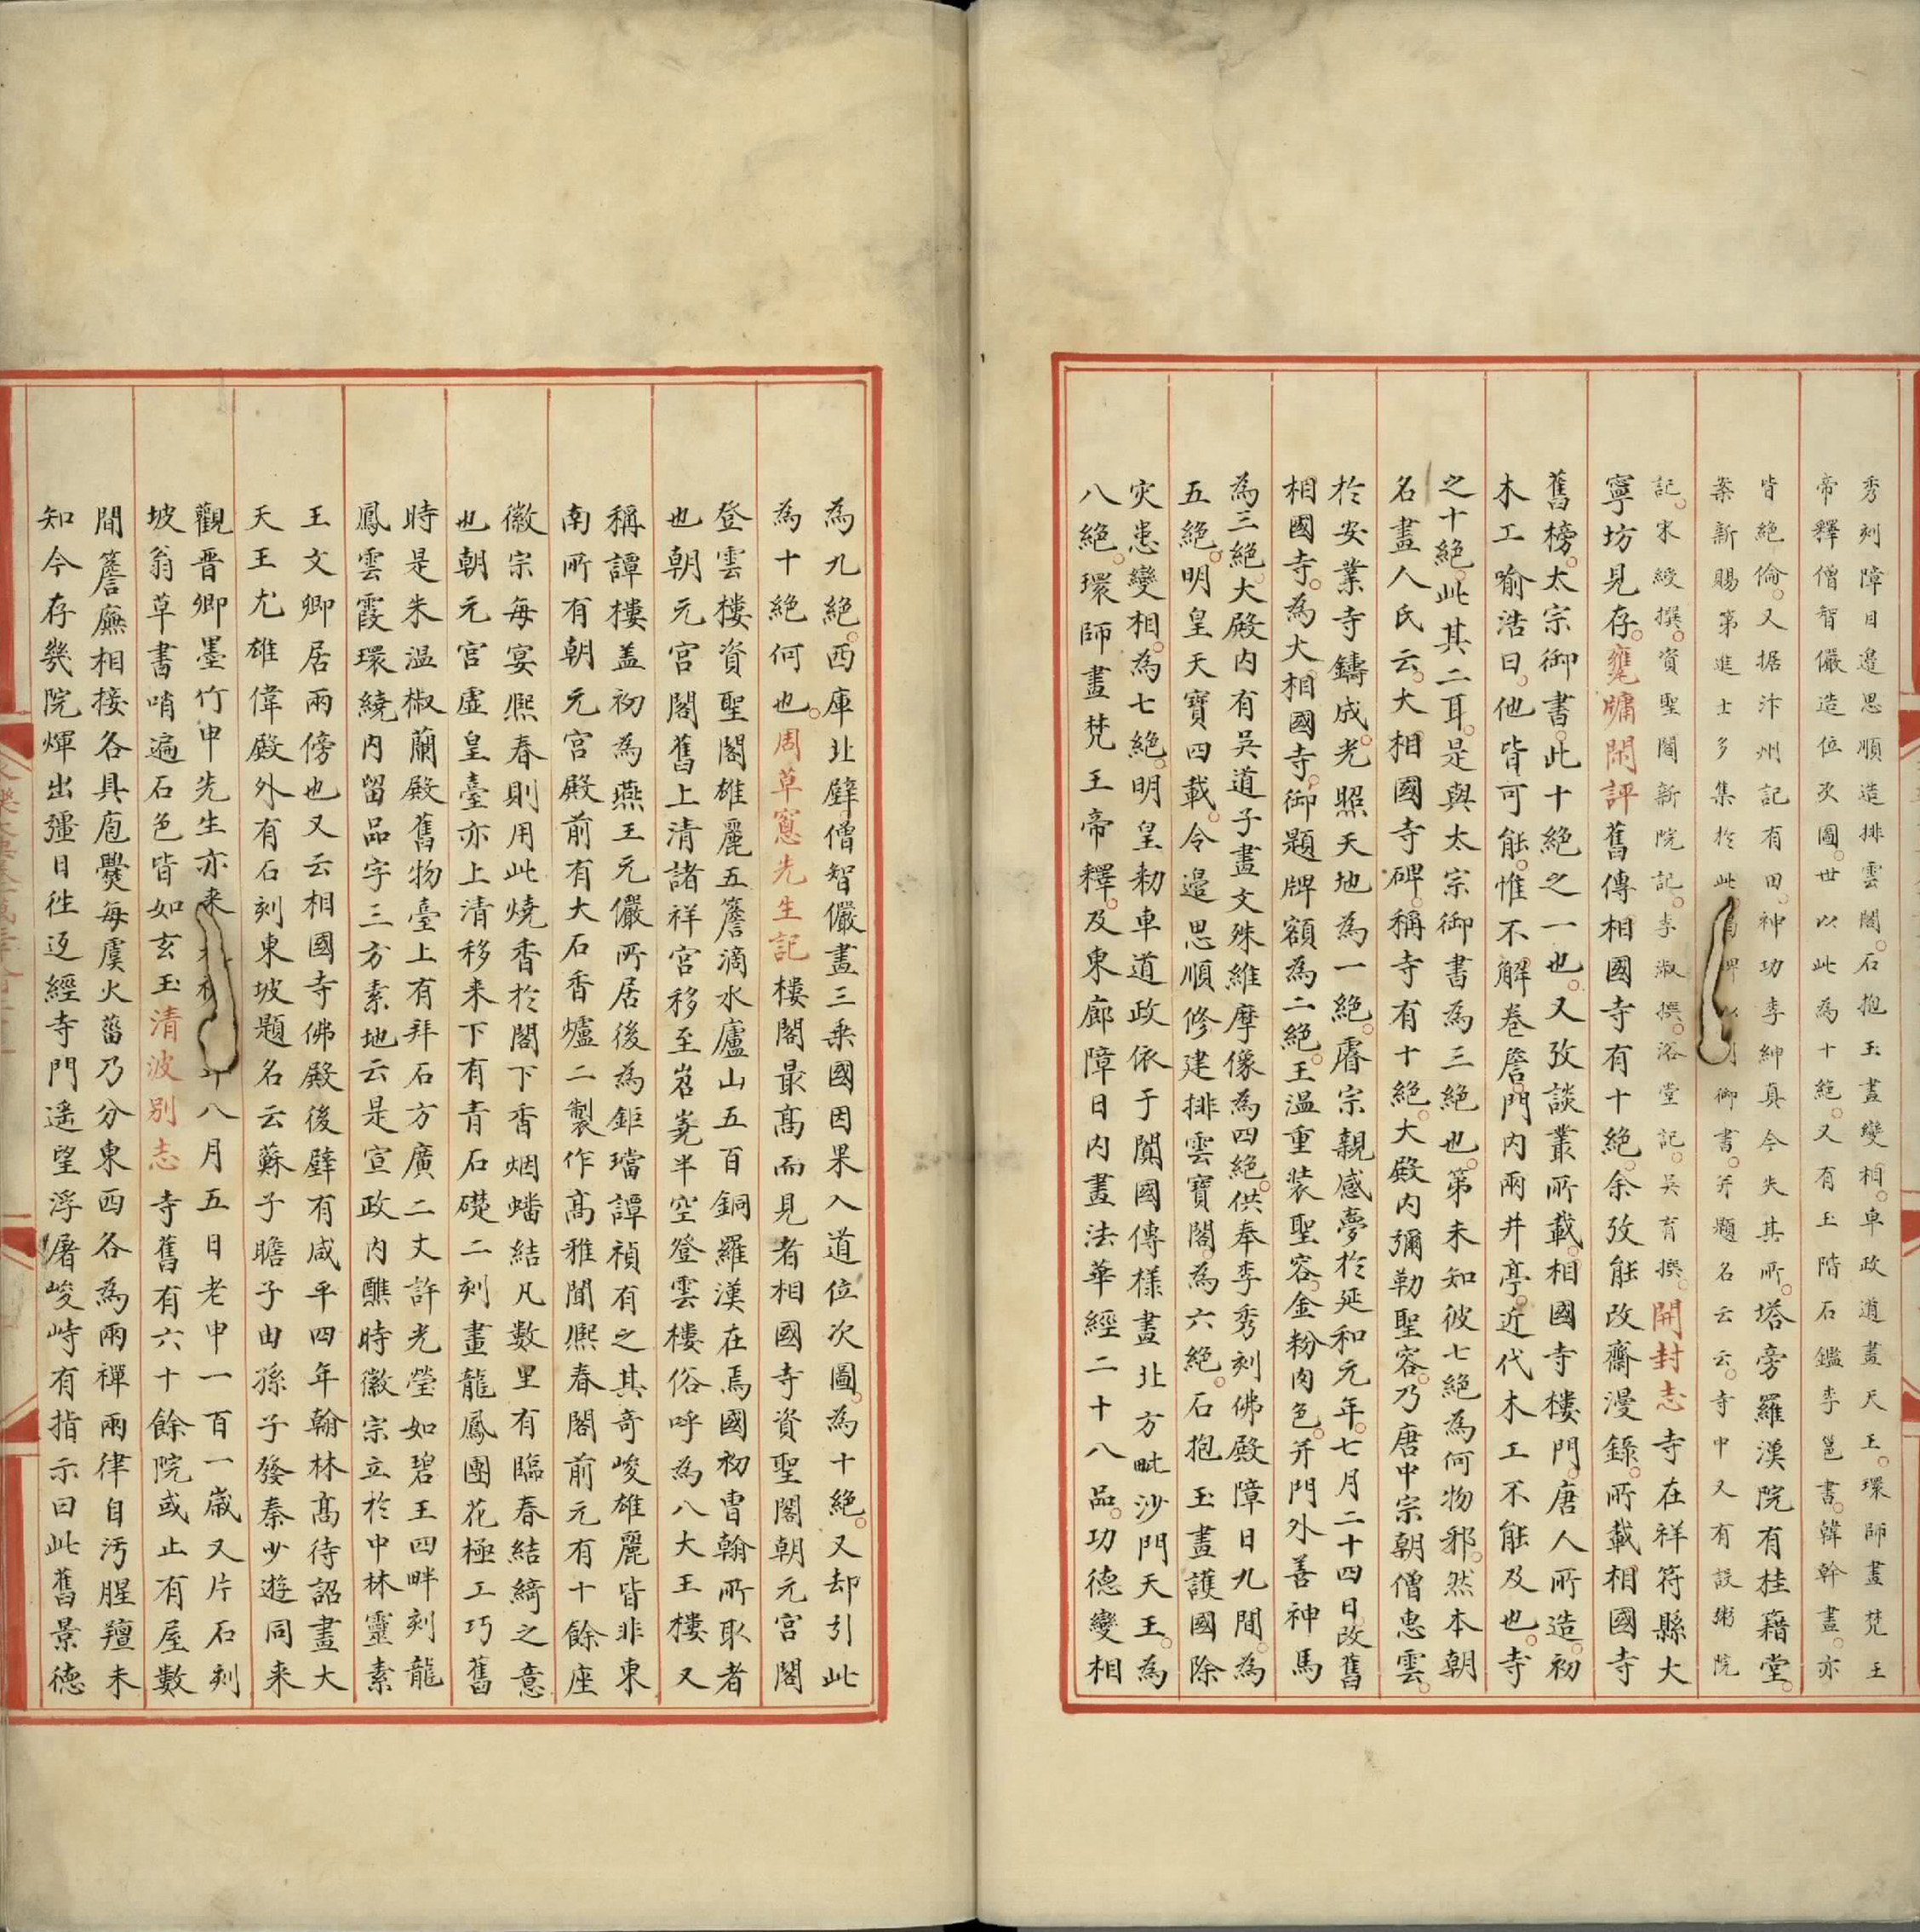 秀刻障日邊思順造排雲閣石抱玉畫變相車政道畫天王環師畫梵王
帝釋僧智儼造位次圖世以此為十絕又有玉階石鑑李邕書韓幹畫亦
皆絕倫又据汴州記有田神功李紳真今失其所塔旁羅漢院有桂籍堂
案新賜第進士多集於此御書并題名云云寺中又有設粥院
記宋綬撰資聖閣新院記李淑撰浴堂記吳育撰開封志寺在祥符縣大
寧坊見存甕牖閑評舊傳相國寺有十絕余攷能改齋漫錄所載相國寺
舊榜太宗御書此十絕之一也又攷談叢所載相國寺樓門唐人所造初
木工喻浩曰他皆可能惟不解卷簷門內兩井亭近代木工不能及也寺
之十絕此其二耳是與太宗御書為三絕也第未知彼七絕為何物邪然本朝
名畫人氏云大相國寺碑稱寺有十絕大殿內彌勒聖容乃唐中宗朝僧惠雲
於安業寺鑄成光照天地為一絕睿宗親感夢於延和元年七月二十四日改舊
相國寺為大相國寺御題牌額為二絕王溫重裝聖容金粉肉色并門外善神馬
為三絕大殿內有吳道子畫文殊維摩像為四絕供奉李秀刻佛殿障日九間為
五絕明皇天寶四載令邊思順修建排雲寶閣為六絕石抱玉畫護國除
災患變相為七絕明皇勑車道政依于闐國傳樣畫北方毗沙門天王為
八絕環師畫梵王帝釋及東廊障日內畫法華經二十八品功德變相
為九絕西庫北壁僧智儼畫三乘國因果入道位次圖為十絕又却引此
為十絕何也周草窻先生記樓閣最高而見者相國寺資聖閣朝元宮閣
登雲樓資聖閣雄麗五簷滴水廬山五百銅羅漢在焉國初曹翰所取者
也朝元宮閣舊上清諸祥宮移至岧嶤半空登雲樓俗呼為八大王樓又
稱譚樓盖初為燕王元儼所居後為鉅璫譚禎有之其奇峻雄麗皆非東
南所有朝元宮殿前有大石香爐二製作高雅聞熙春閣前元有十餘座
徽宗每宴熙春則用此燒香於閣下香烟蟠結凡數里有臨春結綺之意
也朝元宮虛皇臺亦上清移来下有青石礎二刻畫龍鳳團花極工巧舊
時是朱溫椒蘭殿舊物臺上有拜石方廣二丈許光瑩如碧玉四畔刻龍
鳳雲霞環繞內留品字三方素地云是宣政內醮時徽宗立於中林靈素
王文卿居兩傍也又云相國寺佛殿後壁有咸平四年翰林高待詔畫大
天王尤雄偉殿外有石刻東坡題名云蘇子瞻子由孫子發秦少遊同来
觀晋卿墨竹申先生亦来八月五日老申一百一歲又片石刻
坡翁草書哨遍石色皆如玄玉清波别志寺舊有六十餘院或止有屋數
間簷廡相接各具庖爨每虞火菑乃分東西各為兩禪兩律自汚腥羶未
知今存幾院煇出疆日徃迓經寺門遙望浮屠峻峙有指示曰此舊景德